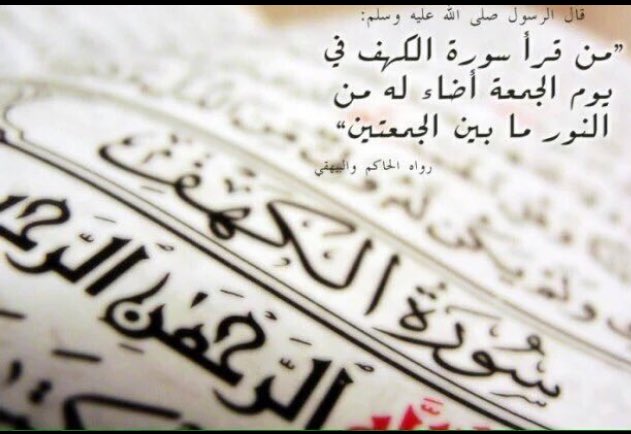 قال الرسول صلى الله عليه وسلم:
”من قرأ سورة الكهف في
يوم الجمعة أضاء له من
النور ما بين الجمعتين“
رواه الحاكم والبيهقي
ولم يكن له
سورة الكهف
الرَّحْمَٰنِ الرَّحِ